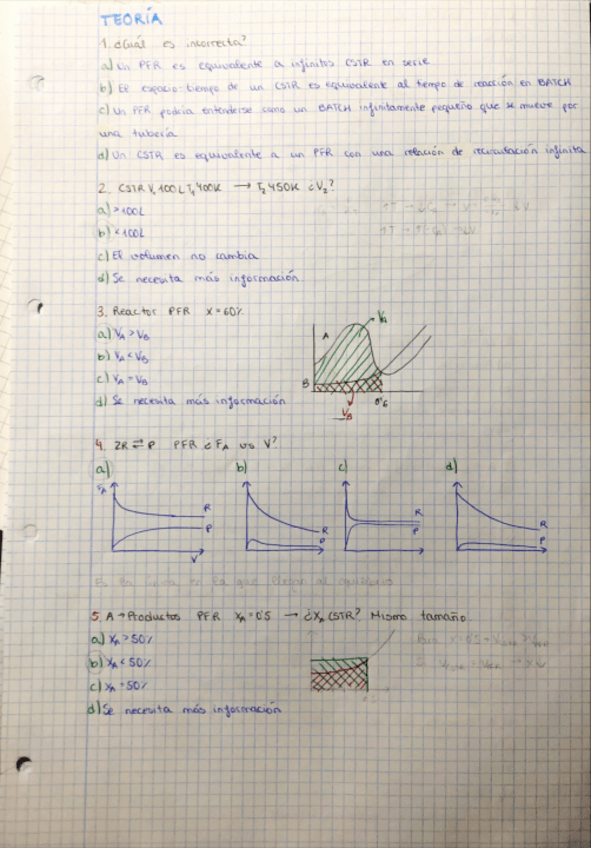 TEORÍA
1. ¿Cuál es incorrecta?
a) Un PFR es equivalente a infinitos CSTR en serie
b) El espacio-tiempo de un CSTR es equivalente al tiempo de reacción en BATCH
c) Un PFR podría entenderse como un BATCH infinitamente pequeño que se mueve por
una tubería
d) Un CSTR es equivalente a un PFR con una relación de recirculación infinita
2. CSTR V1 100L T1 400K → T2 450K ¿V2?
a) >100L
b) <100L
c) El volumen no cambia
d) Se necesita más información
3. Reactor PFR X=60%
a) VA > VB
b) VA < VB
c) VA = VB
d) Se necesita más información
A
VA
B
0'6
VB
4. 2R ⇄ P PFR ¿FA vs V?
a) b) c) d)
FA
R
P
V
R
P
R
P
R
P
Es la única en la que llegar al equilibrio
5. A → Productos PFR XA=0'5 → ¿XA CSTR? Mismo tamaño
a) XA > 50%
b) XA < 50%
c) XA = 50%
d) Se necesita más información